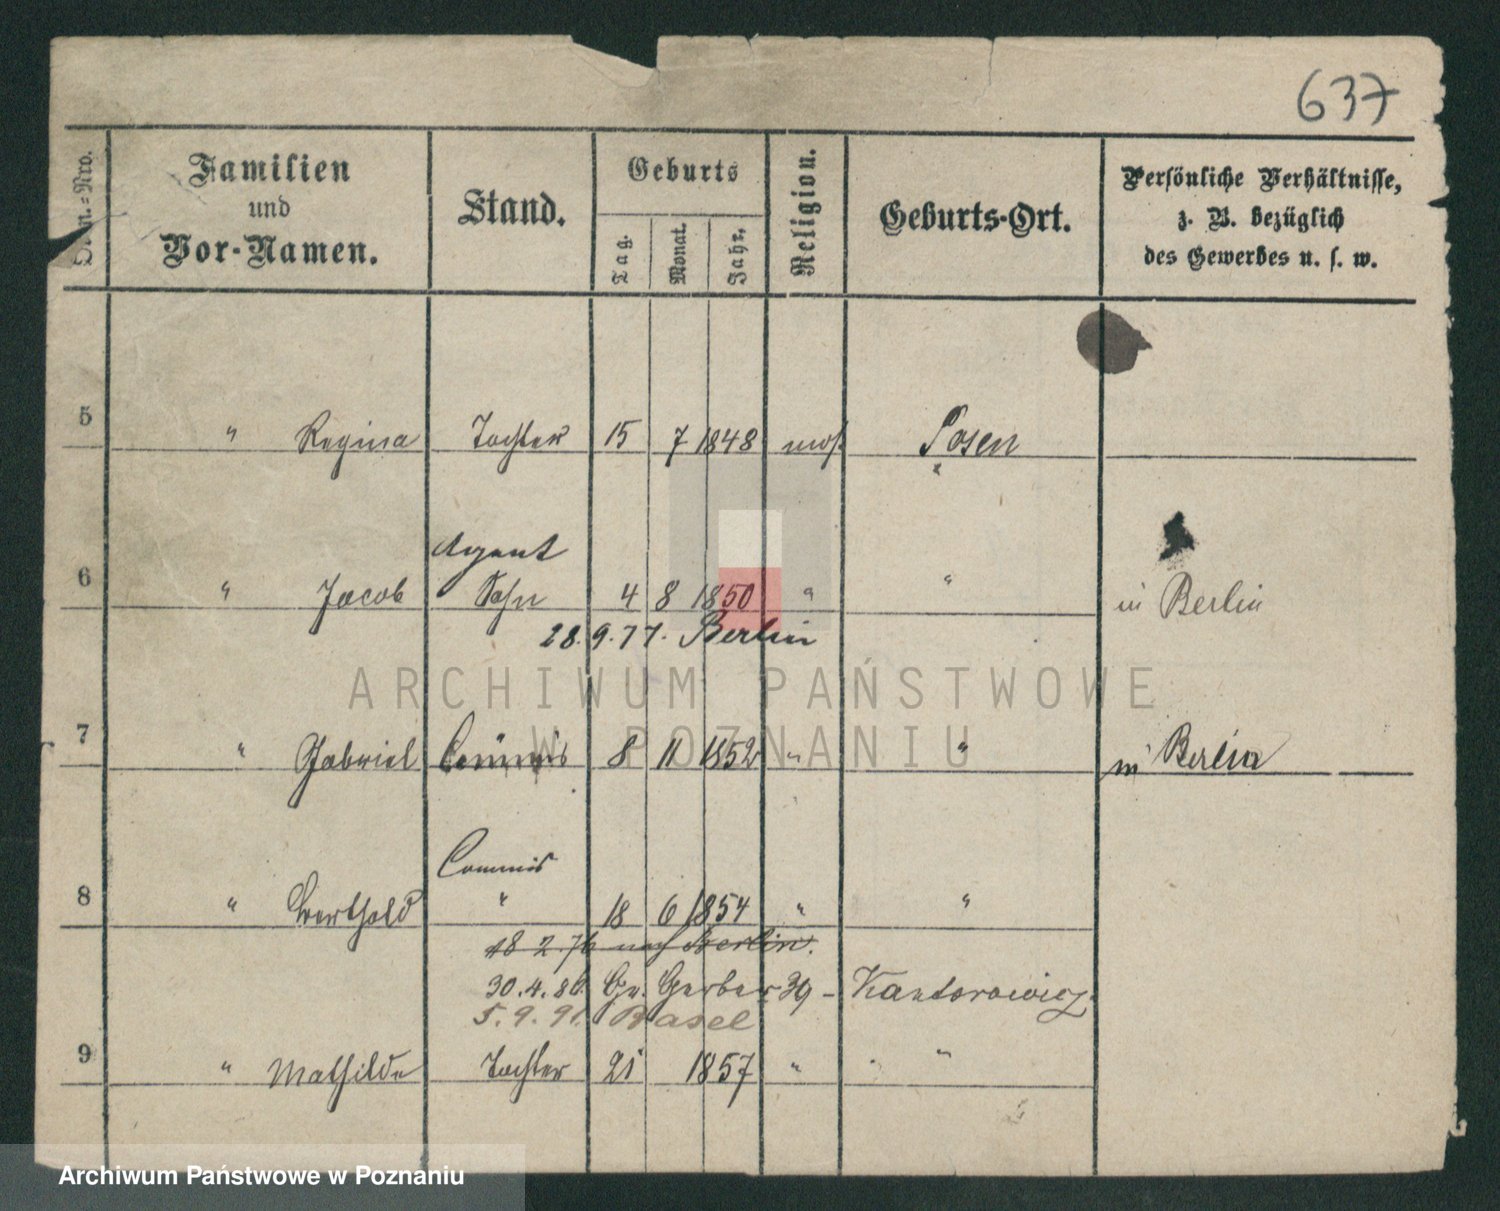 637
Familien
und
Vor-Namen.
Stand.
Geburts
Tag.
Monat.
Jahr.
Religion.
Geburts-Ort.
Persönliche Verhältnisse,
z. B. bezüglich
des Gewerbes u. s. w.
5 " Regina Tochter 15 7 1848 mos Posen
Agent
6 " Jacob Sohn 4 8 1850 " " in Berlin
28.9.77. Berlin
ARCHIWUM PAŃSTWOWE
W POZNANIU
7 " Gabriel Commis 8 11 1852 " " in Berlin
Commis
8 " Berthold " 18 6 1854 " "
18 2. 76 nach Berlin.
30.4.86. Gr. Gerber 39 - Kantorowicz.
5.9.91. Basel
9 " Mathilde Tochter 21 1857 " "
Archiwum Państwowe w Poznaniu